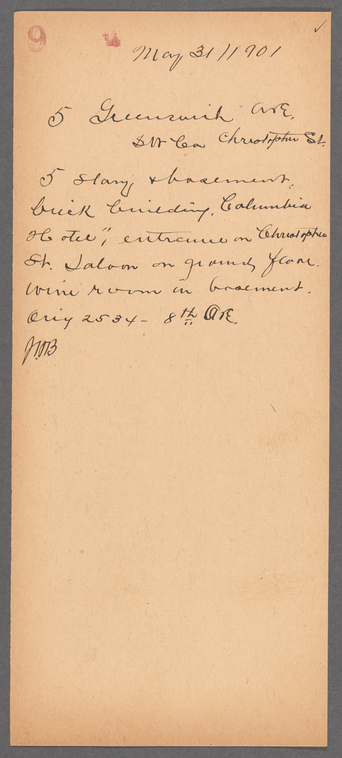 9
May 31/1901
5 Greenwich Ave.
SW Co Christopher St.
5 story & basement,
brick building, Columbia
Hotel", entrance on Christopher
St. Saloon on ground floor.
Wine room in basement.
Orig 2534 - 8th Ave.